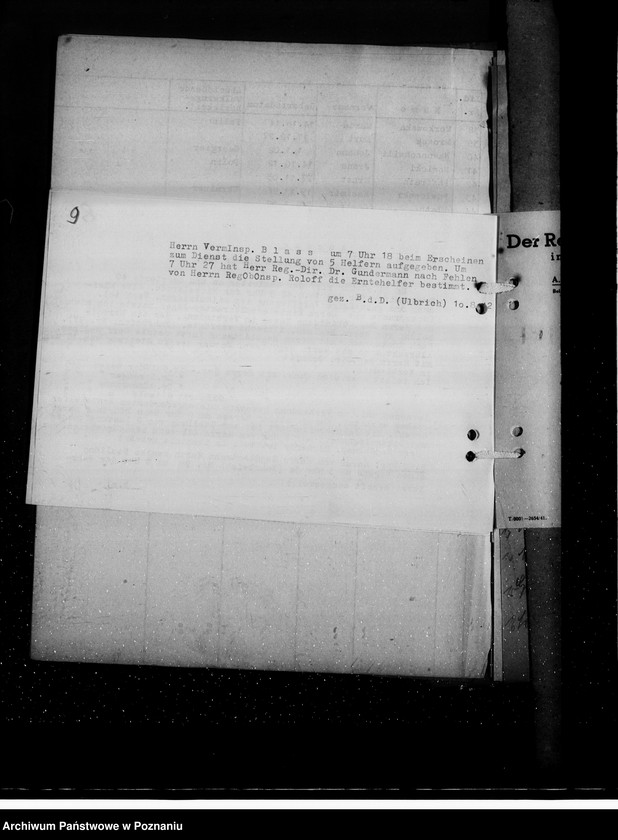 9
Herrn VermInsp. B l a s s um 7 Uhr 18 beim Erscheinen
zum Dienst die Stellung von 5 Helfern aufgegeben. Um
7 Uhr 27 hat Herr Reg.-Dir. Dr. Gundermann nach Fehlen
von Herrn RegObOnsp. Roloff die Erntehelfer bestimmt.
gez. B.d.D. (Ulbrich) 1o.8.
Der Re
in
Archiwum Państwowe w Poznaniu